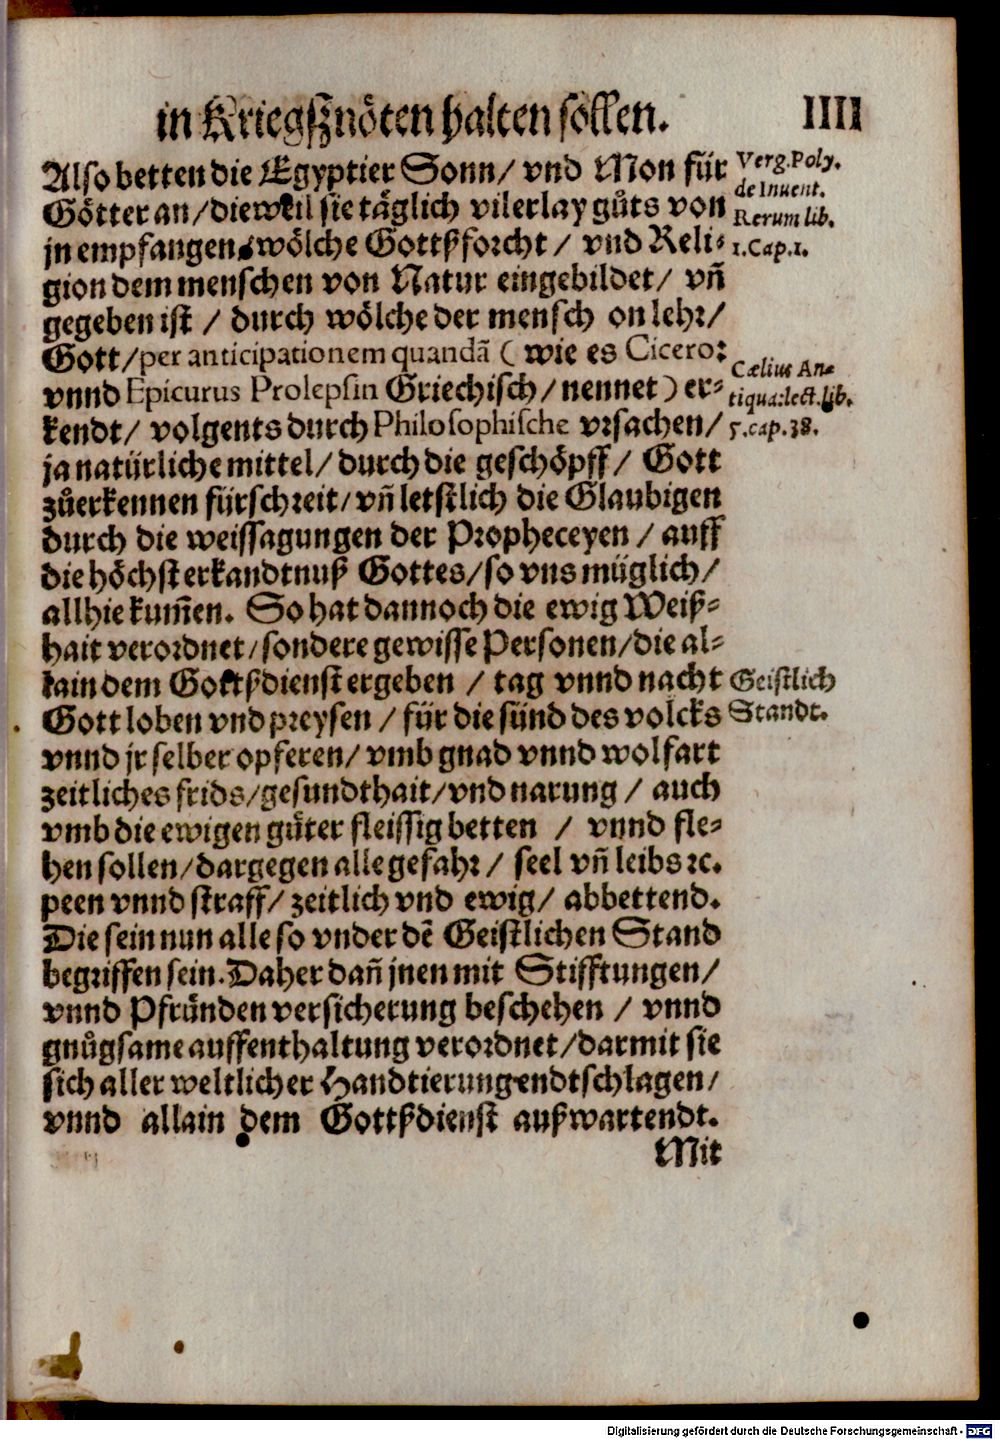 in Kriegſznöten halten ſollen. IIII
Alſo betten die Egyptier Sonn/ vnd Mon für
Götter an/dieweil ſie täglich vilerlay gůts von
jn empfangen, wölche Gottßforcht / vnd Reli⸗
gion dem menſchen von Natur eingebildet/ vñ
gegeben iſt / durch wölche der menſch on lehꝛ/
Gott/per anticipationem quandã ( wie es Cicero:
vnnd Epicurus Prolepſin Griechiſch/nennet) er⸗
kendt/ volgents durch Philoſophiſche vꝛſachen/
ja natürliche mittel/durch die geſchöpff/ Gott
zůerkennen fürſchꝛeit/vñ letſtlich die Glaubigen
durch die weiſſagungen der Pꝛopheceyen / auff
die höchſt erkandtnuß Gottes/ſo vns müglich/
allhie kum̃en. So hat dannoch die ewig Weiß⸗
hait veroꝛdnet/ſondere gewiſſe Perſonen/die al⸗
lain dem Gottßdienſt ergeben / tag vnnd nacht
Gott loben vnd pꝛeyſen / für die ſünd des volcks
vnnd jr ſelber opferen/vmb gnad vnnd wolfart
zeitliches frids/geſundthait/vnd narung / auch
vmb die ewigen gůter fleiſſig betten / vnnd fle⸗
hen ſollen/dargegen alle gefahꝛ / ſeel vñ leibs ꝛc.
peen vnnd ſtraff/ zeitlich vnd ewig/ abbettend.
Die ſein nun alle ſo vnder dẽ Geiſtlichen Stand
begriffen ſein. Daher dañ jnen mit Stifftungen/
vnnd Pfründen verſicherung beſchehen / vnnd
gnůgſame auffenthaltung veroꝛdnet/darmit ſie
ſich aller weltlicher Handtierung endtſchlagen/
vnnd allain dem Gottßdienſt außwartendt.
Mit
Verg.Poly.
de Inuent.
Rerum lib.
1.Cap.1.
Cælius An⸗
tiqua:lect.lib.
5.cap.38.
Geiſtlich
Standt.
Digitalisierung gefördert durch die Deutsche Forschungsgemeinschaft - DFG